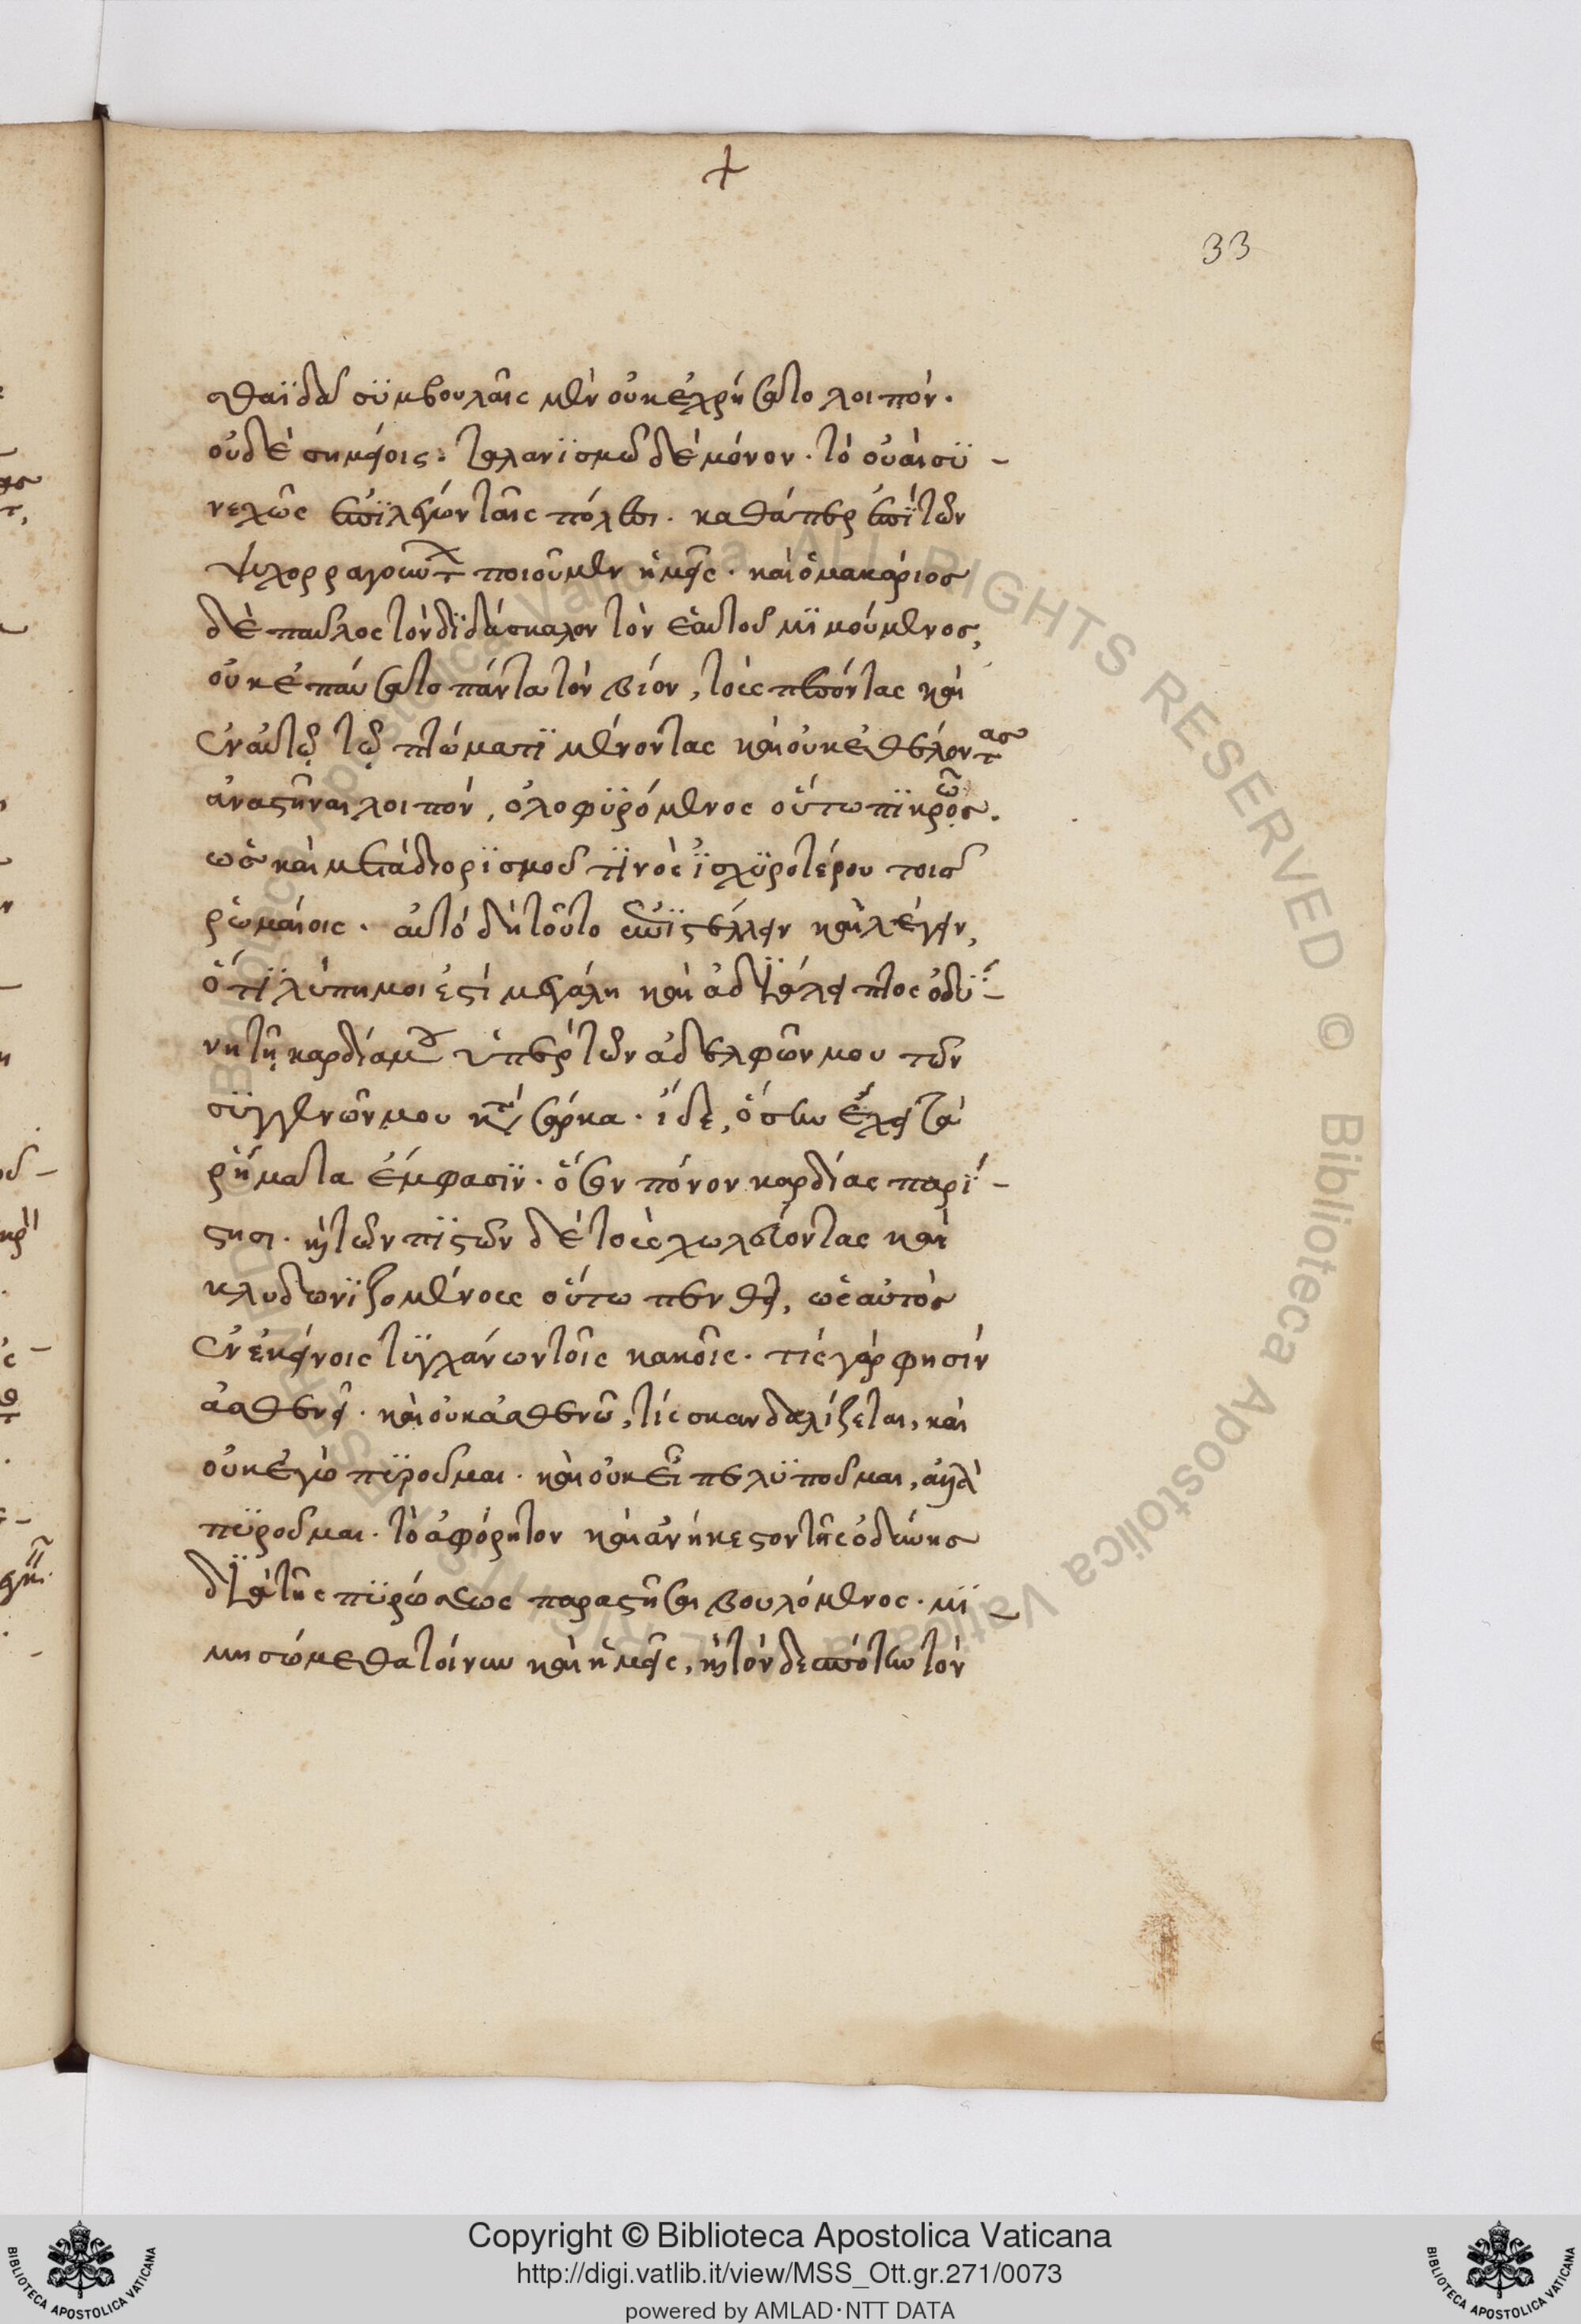 +
33
σθαϊδὰ συμβουλαῖς μὲν οὐκ ἐχρήσατο λοιπόν.
οὐδὲ σημείοις· ταλανϊσμῶ δὲ μόνον. τὸ οὐαὶ συ-
νεχῶς ἐπϊλέγων ταῖς πόλεσι. καθάπερ ἐπῒ τῶν
ψυχορραγούντ ποιοῦμεν ἡμεῖς. καὶ ὁ μακάριος
δὲ παῦλος τὸν δϊδάσκαλον τὸν ἑαυτοῦ μϊμούμενος,
οὐκ ἐπαύσατο πάντα τὸν βίον, τοὺς πεσόντας καὶ
ἐν αὐτῷ τῷ πτώματϊ μένοντας καὶ οὐκ ἐθέλοντας
ἀναστῆναι λοιπὸν, ὀλοφϋρόμενος οὕτω πϊκρῶς.
ὡς καὶ μετὰ διορϊσμοῦ τϊνὸς ἰσχϋροτέρου τοῖς
ῥωμαίοις. αὐτὸ δὴ τοῦτο ἐπϊστέλλειν καὶ λέγειν,
ὅτϊ λύπη μοι ἐστὶ μεγάλη καὶ ἀδϊάλειπτος ὀδύ-
νη τῇ καρδία μου ὑπὲρ τῶν ἀδελφῶν μου τῶν
συγγενῶν μου κατὰ σάρκα. ἴδε, ὅσην ἔχει τὰ
ῥήματα ἔμφασϊν. ὅσον πόνον καρδίας παρί-
στησι. καὶ τῶν πϊστῶν δὲ τοὺς χωλεύοντας καὶ
κλυδωνϊζομένους οὕτω πενθεῖ, ὡς αὐτὸς
ἐν ἐκείνοις τυγχάνων τοῖς κακοῖς. τίς γάρ φησὶν
ἀσθενεῖ. καὶ οὐκ ἀσθενῶ, τίς σκανδαλίζεται, καὶ
οὐκ ἐγὼ πϋροῦμαι. καὶ οὐκ εἶπε λϋποῦμαι, ἀλλὰ
πϋροῦμαι. τὸ ἀφόρητον καὶ ἀνήκεστον τῆς ὀδύνης
δϊὰ τῆς πϋρώσεως παραστῆσαι βουλόμενος. μϊ-
μησώμεθα τοίνυν καὶ ἡμεῖς, καὶ τὸν δεσπότην τὸν
Copyright © Biblioteca Apostolica Vaticana
http://digi.vatlib.it/view/MSS_Ott.gr.271/0073
powered by AMLAD·NTT DATA